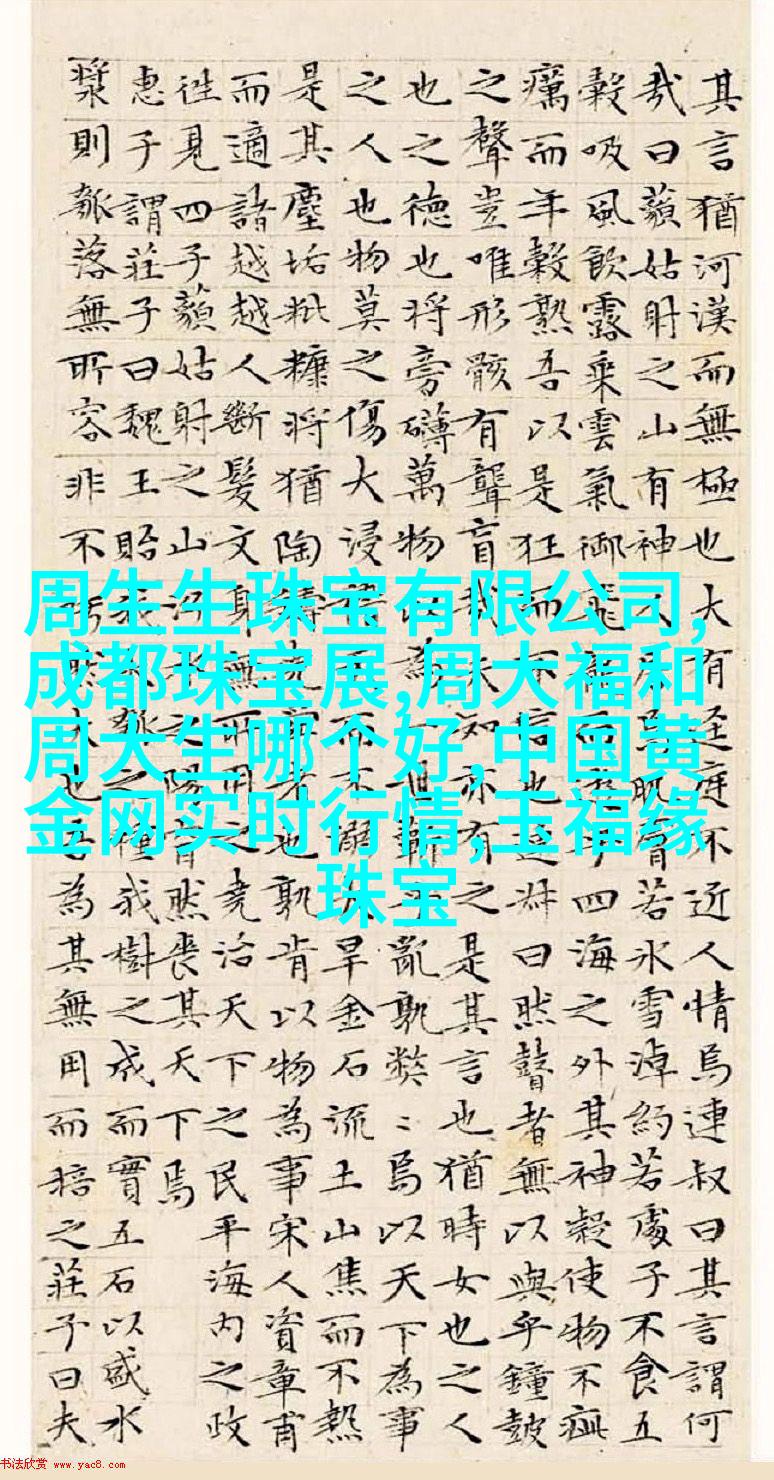 其言猶河漢而無極也大有迳庭不近人情焉連叔曰其言謂何
哉曰藐姑射之山有神人居焉肌膚若氷雪淖約若處子不食五
穀吸風飲露乘雲氣御飛龍而遊乎四海之外其神凝使物不疵
癘而年穀熟吾以是狂而不信也連叔曰然瞽者無以與乎鐘鼓
之聲豈唯形骸有聾盲哉夫知亦有之是其言也猶時女也之人
也之德也將旁礴萬物以為一世蘄乎亂孰弊〻焉以天下為事
之人也物莫之傷大浸稽天而不溺大旱金石流土山焦而不熱
是其塵垢粃糠將猶陶鑄堯舜者也孰肯以物為事宋人資章甫
而適諸越越人斷髮文身無所用之堯治天下之民平海内之政
往見四子藐姑射之山汾水之陽窅然喪其天下焉
惠子謂莊子曰魏王貽我大瓠之種我樹之成而實五石以盛水
漿則瓠落無所容非不呺然大也吾為其無用而掊之莊子曰夫
周生生珠宝有限公司,
成都珠宝展,周大福和
周大生哪个好,中国黄
金网实时行情,玉福缘
珠宝
书法欣赏 www.yac8.com